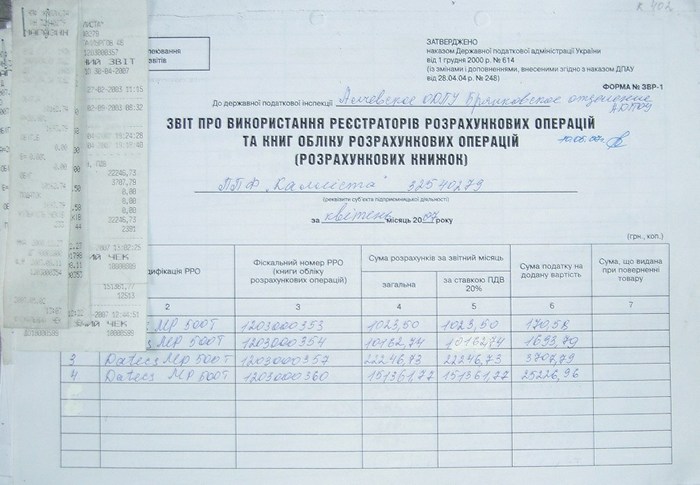 К 40з
ЗАТВЕРДЖЕНО
наказом Державної податкової адміністрації України
від 1 грудня 2000 р. № 614
(із змінами і доповненнями, внесеними згідно з наказом ДПАУ
від 28.04.04 р. № 248)
ФОРМА № ЗВР-1
До державної податкової інспекції Алчевское ОДПУ Брянковское отделение
ЗВІТ ПРО ВИКОРИСТАННЯ РЕЄСТРАТОРІВ РОЗРАХУНКОВИХ ОПЕРАЦІЙ
ТА КНИГ ОБЛІКУ РОЗРАХУНКОВИХ ОПЕРАЦІЙ
(РОЗРАХУНКОВИХ КНИЖОК)
ППФ "Каллиста" 32540279
(реквізити суб'єкта підприємницької діяльності)
за квітень місяць 2007 року
(грн., коп.)
дифікація РРО
Фіскальний номер РРО
(книги обліку
розрахункових операцій)
Сума розрахунків за звітний місяць
загальна
за ставкою ПДВ
20%
Сума податку на
додану вартість
Сума, що видана
при поверненні
товару
2 3 4 5 6 7
MP 500T 1203000353 1023,50 1023,50 170,58
MP 500T 1203000354 10162,74 10162,74 1693,79
3 Datecs MP 500T 1203000357 22246,73 22246,73 3707,79
4 Datecs MP 500T 1203000360 151361,77 151361,77 25226,96
ИЙ ЗВІТ
30-04-2007
22246,73
3707,79
0,00
0,00
0,00
22246,73
44
2381
ИЙ ЧЕК
151361,77
12513
ИЙ ЧЕК